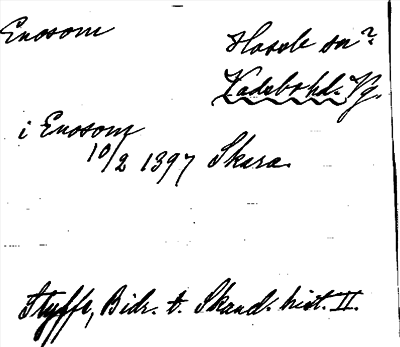 Enosom
Hassle sn?
Vadsbo hd. Vg.
i Enosom
10/2 1397 Skara.
Styffe, Bidr. t. Skand. hist. II.